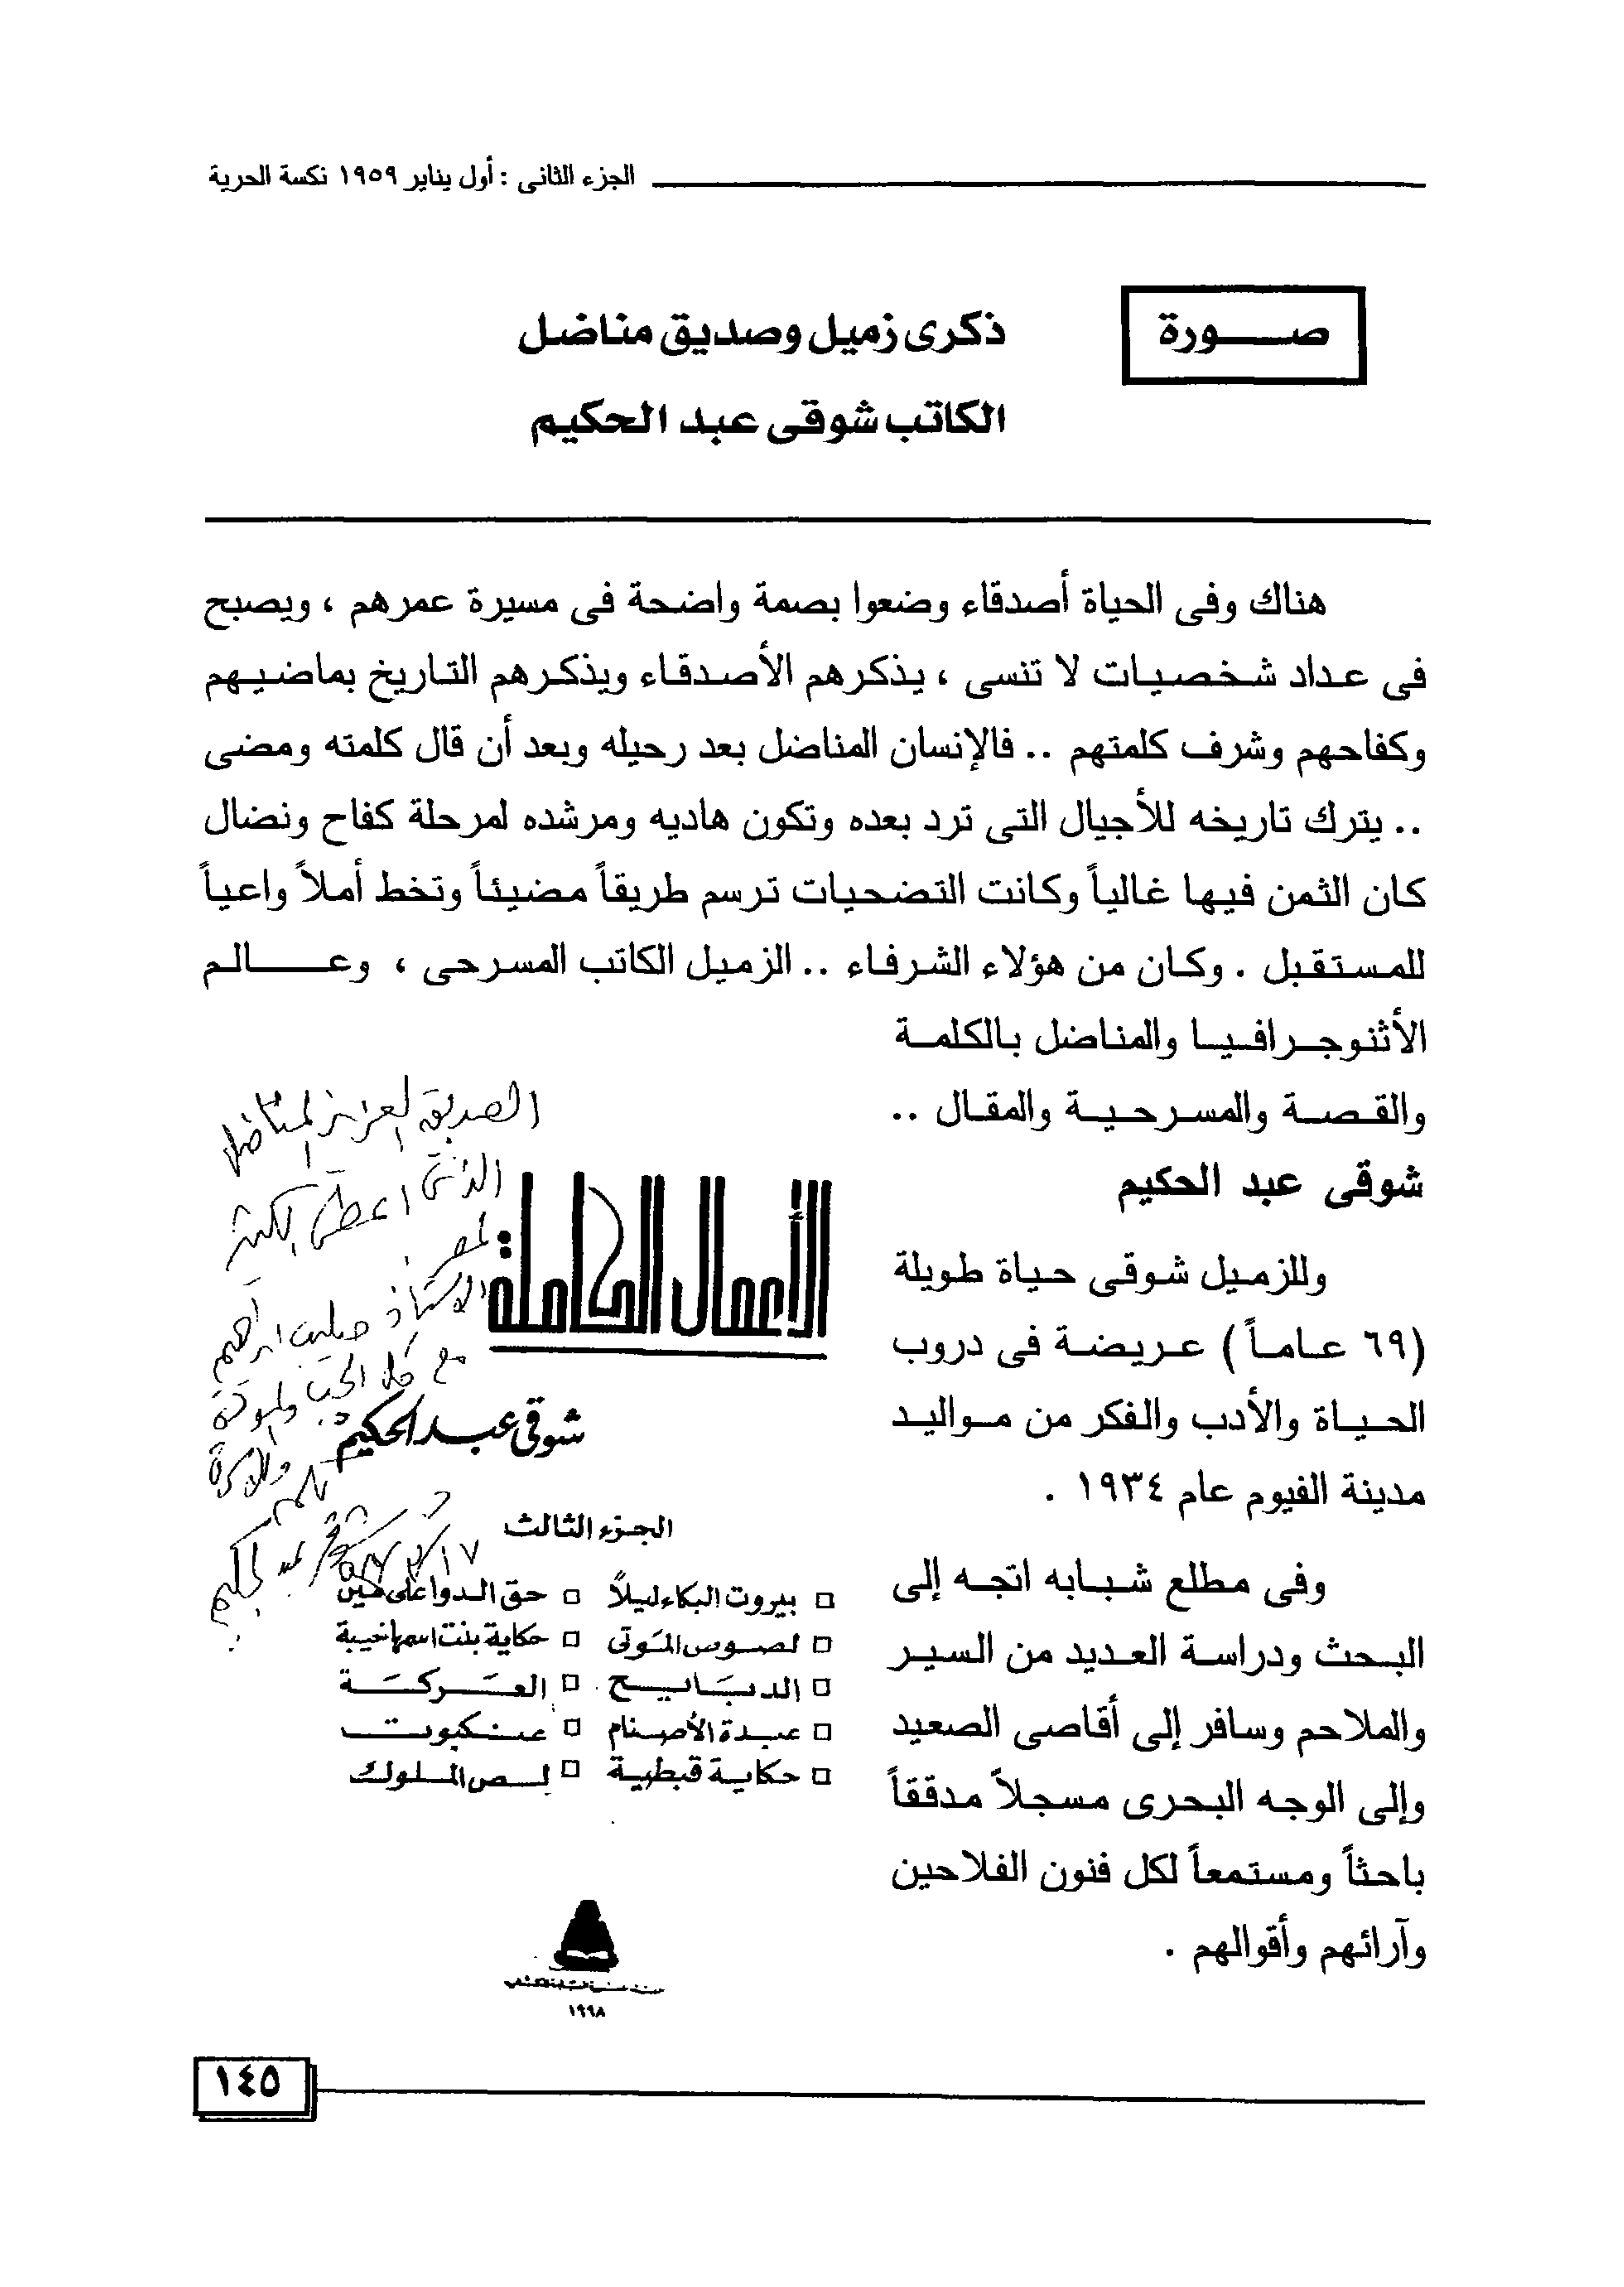 الجزء الثانى : أول يناير ١٩٥٩ نكسة الحرية
صـــورة
ذكرى زميل وصديق مناضل
الكاتب شوقى عبد الحكيم
هناك وفى الحياة أصدقاء وضعوا بصمة واضحة فى مسيرة عمرهم ، ويصبح
فى عداد شخصيات لا تنسى ، يذكرهم الأصدقاء ويذكرهم التاريخ بماضيهم
وكفاحهم وشرف كلمتهم .. فالإنسان المناضل بعد رحيله وبعد أن قال كلمته ومضى
.. يترك تاريخه للأجيال التى ترد بعده وتكون هاديه ومرشده لمرحلة كفاح ونضال
كان الثمن فيها غالياً وكانت التضحيات ترسم طريقاً مضيئاً وتخط أملاً واعياً
للمستقبل . وكان من هؤلاء الشرفاء .. الزميل الكاتب المسرحى ، وعـــالم
الأثنوجرافيا والمناضل بالكلمة
والقصة والمسرحية والمقال ..
شوقى عبد الحكيم
وللزميل شوقى حياة طويلة
(٦٩ عاماً) عريضة فى دروب
الحياة والأدب والفكر من مواليد
مدينة الفيوم عام ١٩٣٤ .
وفى مطلع شبابه اتجه إلى
البحث ودراسة العديد من السير
والملاحم وسافر إلى أقاصى الصعيد
وإلى الوجه البحرى مسجلاً مدققاً
باحثاً ومستمعاً لكل فنون الفلاحين
وآرائهم وأقوالهم .
الصديق العزيز المناضل
الذى اعطى الكثير
لمصر
الاستاذ ابراهيم
مع كل الحب
شوقى عبد الحكيم
الأعمال الكاملة
شوقى عبد الحكيم
الجزء الثالث
بيروت البكاء ليلاً
حق الدوا على مين
لصوص الموتى
حكاية بنت اسمها خيبة
الدبابيح
العركة
عبدة الأصنام
عنكبوت
حكاية قبطية
لص الملوك
١٩٩٨
١٤٥